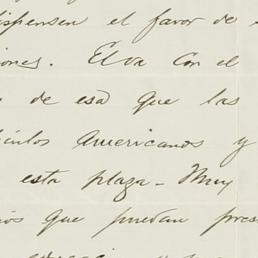 dispensen el favor de
iones. Elva con el
de esa que las
culos Americanos y
esta plaza - Muy
ios que puedan pres